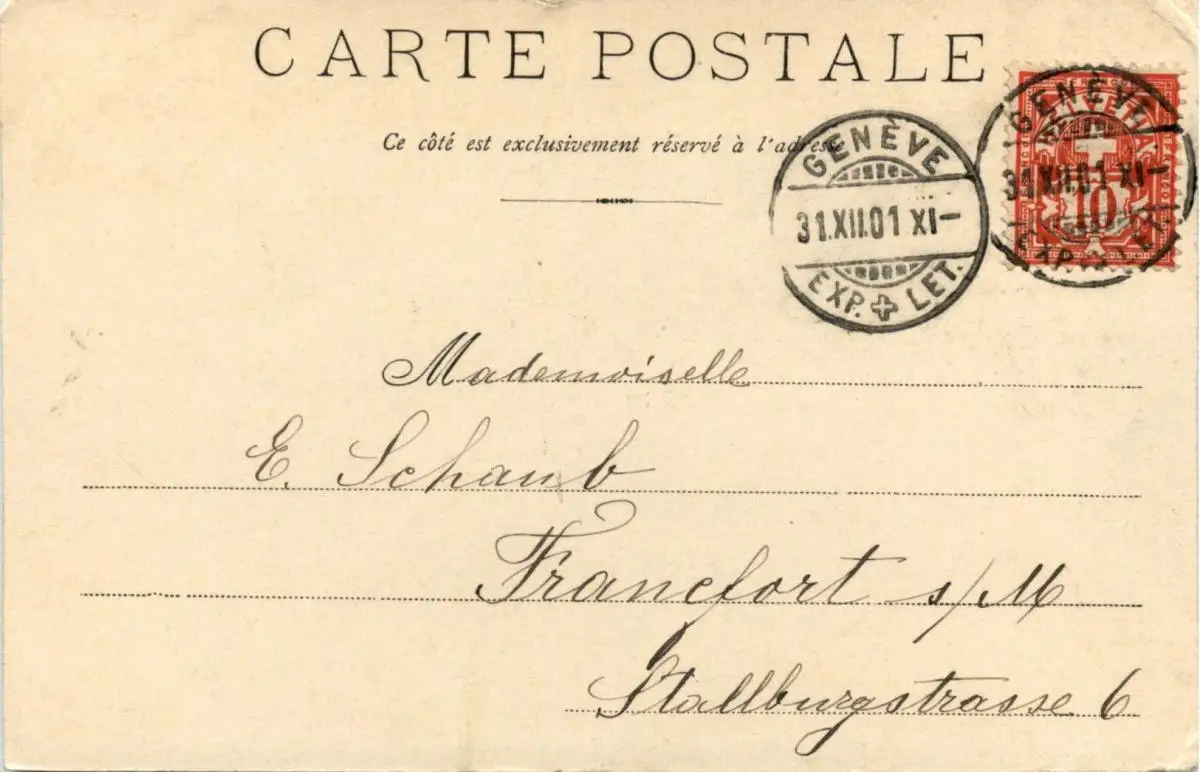 CARTE POSTALE
Ce côté est exclusivement réservé à l'adresse
GENÈVE
31.XII.01 XI—
EXP. LET.
GENÈVE
HELVETIA
31.XII.01 XI—
10
EXP. LET.
Mademoiselle
E. Schaub
Francfort s/M
Stallburgstrasse 6